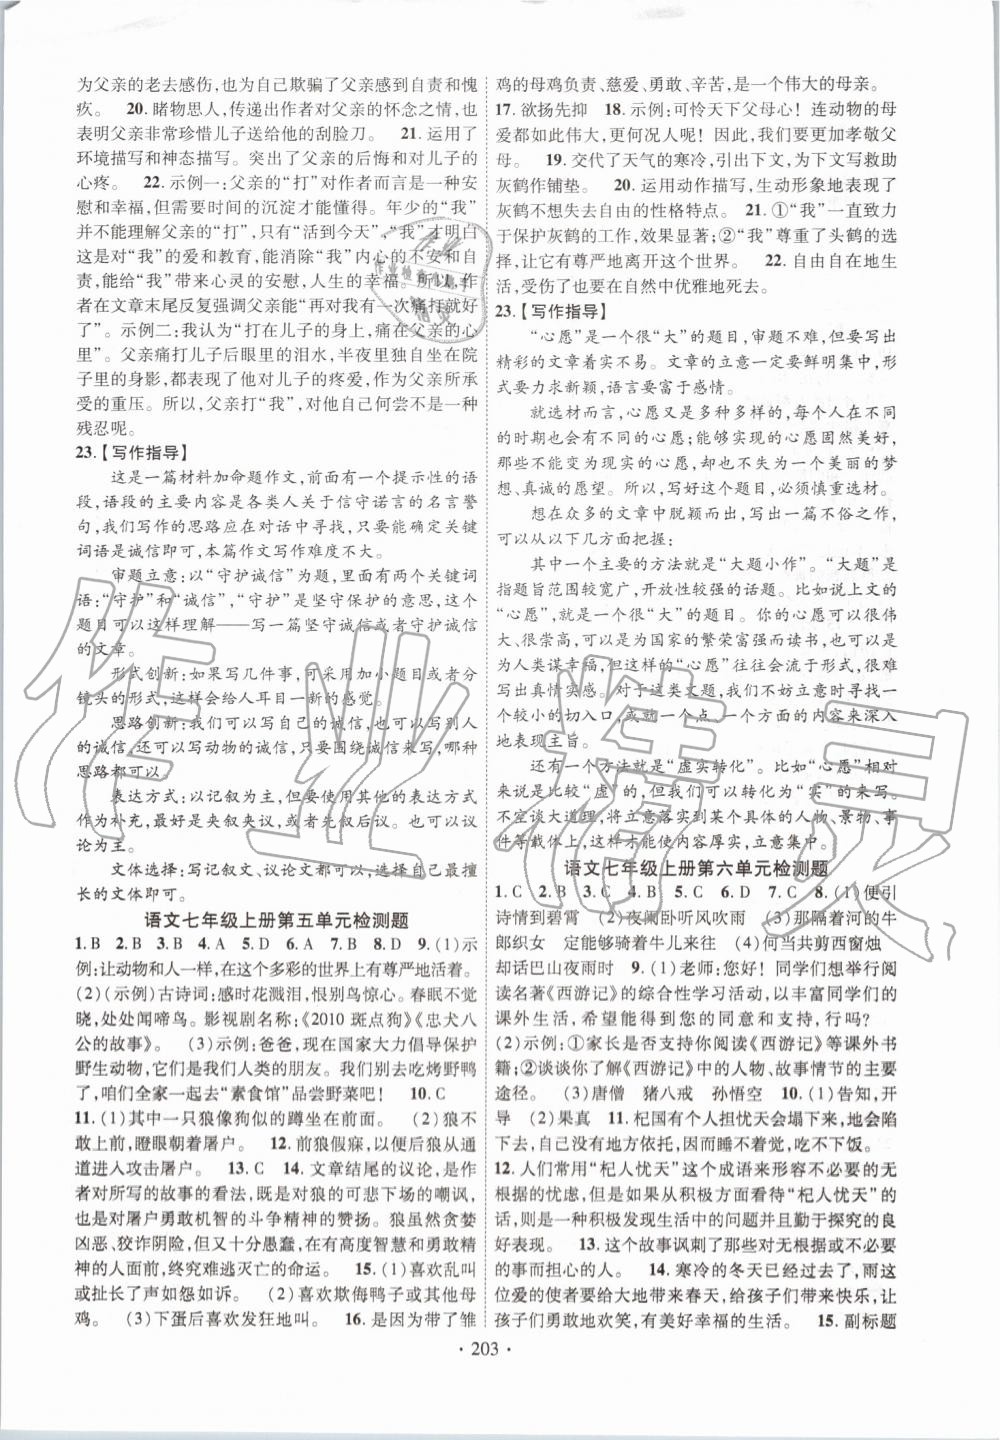 为父亲的老去感伤,也为自己欺骗了父亲感到自责和愧
疚。 20. 睹物思人,传递出作者对父亲的怀念之情,也
表明父亲非常珍惜儿子送给他的刮脸刀。 21. 运用了
环境描写和神态描写。突出了父亲的后悔和对儿子的
心疼。 22. 示例一:父亲的“打”对作者而言是一种安
慰和幸福,但需要时间的沉淀才能懂得。年少的“我”
并不能理解父亲的“打”,只有“活到今天”,“我”才明白
这是对“我”的爱和教育,能消除“我”内心的不安和自
责,能给“我”带来心灵的安慰,人生的幸福。所以,作
者在文章末尾反复强调父亲能“再对我有一次痛打就好
了”。示例二:我认为“打在儿子的身上,痛在父亲的心
上”。父亲痛打儿子后眼里的泪水,半夜里独自坐在院
子里的身影,都表现了他对儿子的疼爱,作为父亲所承
受的重压。所以,父亲打“我”,对他自己何尝不是一种
残忍呢。
23.【写作指导】
这是一篇材料加命题作文,前面有一个提示性的语
段,语段的主要内容是各类人关于信守诺言的名言警
句,我们写作的思路应在对话中寻找,只要能确定关键
词语是诚信即可,本篇作文写作难度不大。
审题立意:以“守护诚信”为题,里面有两个关键词
语:“守护”和“诚信”,“守护”是坚守保护的意思,这个
题目可以这样理解——写一篇坚守诚信或者守护诚信
的文章。
形式创新:如果写几件事,可采用加小标题或者分
镜头的形式,这样会给人耳目一新的感觉。
思路创新:我们可以写自己的诚信,也可以写别人
的诚信,还可以写动物的诚信,只要围绕诚信来写,哪种
思路都可以。
表达方式:以记叙为主,但要使用其他的表达方式
作为补充,最好是夹叙夹议,或者先叙后议。也可以议
论为主。
文体选择:写记叙文、议论文都可以,选择自己最擅
长的文体即可。
语文七年级上册第五单元检测题
1. B 2. B 3. B 4. A 5. D 6. A 7. B 8. D 9. (1)示
例:让动物和人一样,在这个多彩的世界上有尊严地活着。
(2)(示例)古诗词:感时花溅泪,恨别鸟惊心。春眠不觉
晓,处处闻啼鸟。影视剧名称:《2010 斑点狗》《忠犬八
公的故事》。 (3)示例:爸爸,现在国家大力倡导保护
野生动物,它们是我们人类的朋友。我们别去吃烤野鸭
了,咱们全家一起去“素食馆”品尝野菜吧! 10. C
11. (1)其中一只狼像狗似的蹲坐在前面。 (2)狼不
敢上前,瞪眼朝着屠户。 12. 前狼假寐,以便后狼从通
道进入攻击屠户。 13. C 14. 文章结尾的议论,是作
者对所写的故事的看法,既有对狼的可悲下场的嘲讽,也
是对屠户勇敢机智的斗争精神的赞扬。狼虽然贪婪
凶恶、狡诈阴险,但又十分愚蠢,在有高度智慧和勇敢精
神的人面前,终究难逃灭亡的命运。 15. (1)喜欢乱叫
或扯长了声如怨如诉。 (2)喜欢欺侮鸭子或其他母
鸡。 (3)下蛋后喜欢发狂地叫。 16. 是因为带了雏
鸡的母鸡负责、慈爱、勇敢、辛苦,是一个伟大的母亲。
17. 欲扬先抑 18. 示例:可怜天下父母心! 连动物的母
爱都如此伟大,更何况人呢! 因此,我们要更加孝敬父
母。 19. 交代了天气的寒冷,引出下文,为下文写救助
灰鹤作铺垫。 20. 运用动作描写,生动形象地表现了
灰鹤不想失去自由的性格特点。 21. ①“我”一直致力
于保护灰鹤的工作,效果显著;②“我”尊重了头鹤的选
择,让它有尊严地离开这个世界。 22. 自由自在地生
活,受伤了也要在自然中优雅地死去。
23.【写作指导】
“心愿”是一个很“大”的题目,审题不难,但要写出
精彩的文章着实不易。文章的立意一定要鲜明集中,形
式要力求新颖,语言要富于感情。
就选材而言,心愿又是多种多样的,每个人在不同
的时期也会有不同的心愿;能够实现的心愿固然美好,
那些不能变为现实的心愿,却也不失为一个美丽的梦
想、真诚的愿望。所以,写好这个题目,必须慎重选材。
想在众多的文章中脱颖而出,写出一篇不俗之作,
可以从以下几方面把握:
其中一个主要的方法就是“大题小作”。“大题”是
指题旨范围较宽广,开放性较强的话题。比如说上文的
“心愿”,就是一个很“大”的题目。你的心愿可以很伟
大、很崇高,可以是为国家的繁荣富强而读书,也可以是
为人类谋幸福,但写这样的“心愿”往往会流于形式,难
写出真情实感。对于这类文题,不妨立意时寻找一
个较小的切入口,或一个点、一个方面的内容来深入
地表现主旨。
还有一个方法就是“虚实转化”。比如“心愿”相对
来说是比较“虚”的,但是,我们可以转化为“实”来写。
不空谈大道理,将立意落实到某个具体的人物、景物、事
件等载体上,这样才能使内容厚实,立意集中。
语文七年级上册第六单元检测题
1. C 2. B 3. C 4. B 5. C 6. D 7. C 8. (1)便引
诗情到碧霄 (2)夜阑卧听风吹雨 (3)那隔着河的牛
郎织女 定能够骑着牛儿来往 (4)何当共剪西窗烛
却话巴山夜雨时 9. (1)老师:您好! 同学们想开展阅
读名著《西游记》的综合性学习活动,以丰富同学们的
课外生活,希望能得到您的同意和支持,行吗?
(2)示例:①家长是否支持你阅读《西游记》等课外书
籍;②谈谈你了解《西游记》中的人物、故事情节的主要
途径。 (3)唐僧 猪八戒 孙悟空 10. (1)告知,开
导 (2)果真 11. 杞国有个人担忧天会塌下来,地会陷
下去,自己的身体无处寄托,因而睡不着觉,吃不下饭。
12. 人们常用“杞人忧天”这个成语来形容不必要的无
根据的忧虑,但是如果从积极方面看待“杞人忧天”的
话,则是一种积极发现生活中的问题并善于探究的良
好表现。 13. 这个故事讽刺了那些为无根据或不必要
的事而担心的人。 14. 寒冷的冬天已经过去了,雨这
位爱的使者要给大地带来春天,给孩子们带来快乐,让
孩子们勇敢地欢笑,有美好幸福的生活。 15. 副标题
· 203 ·
作业精灵